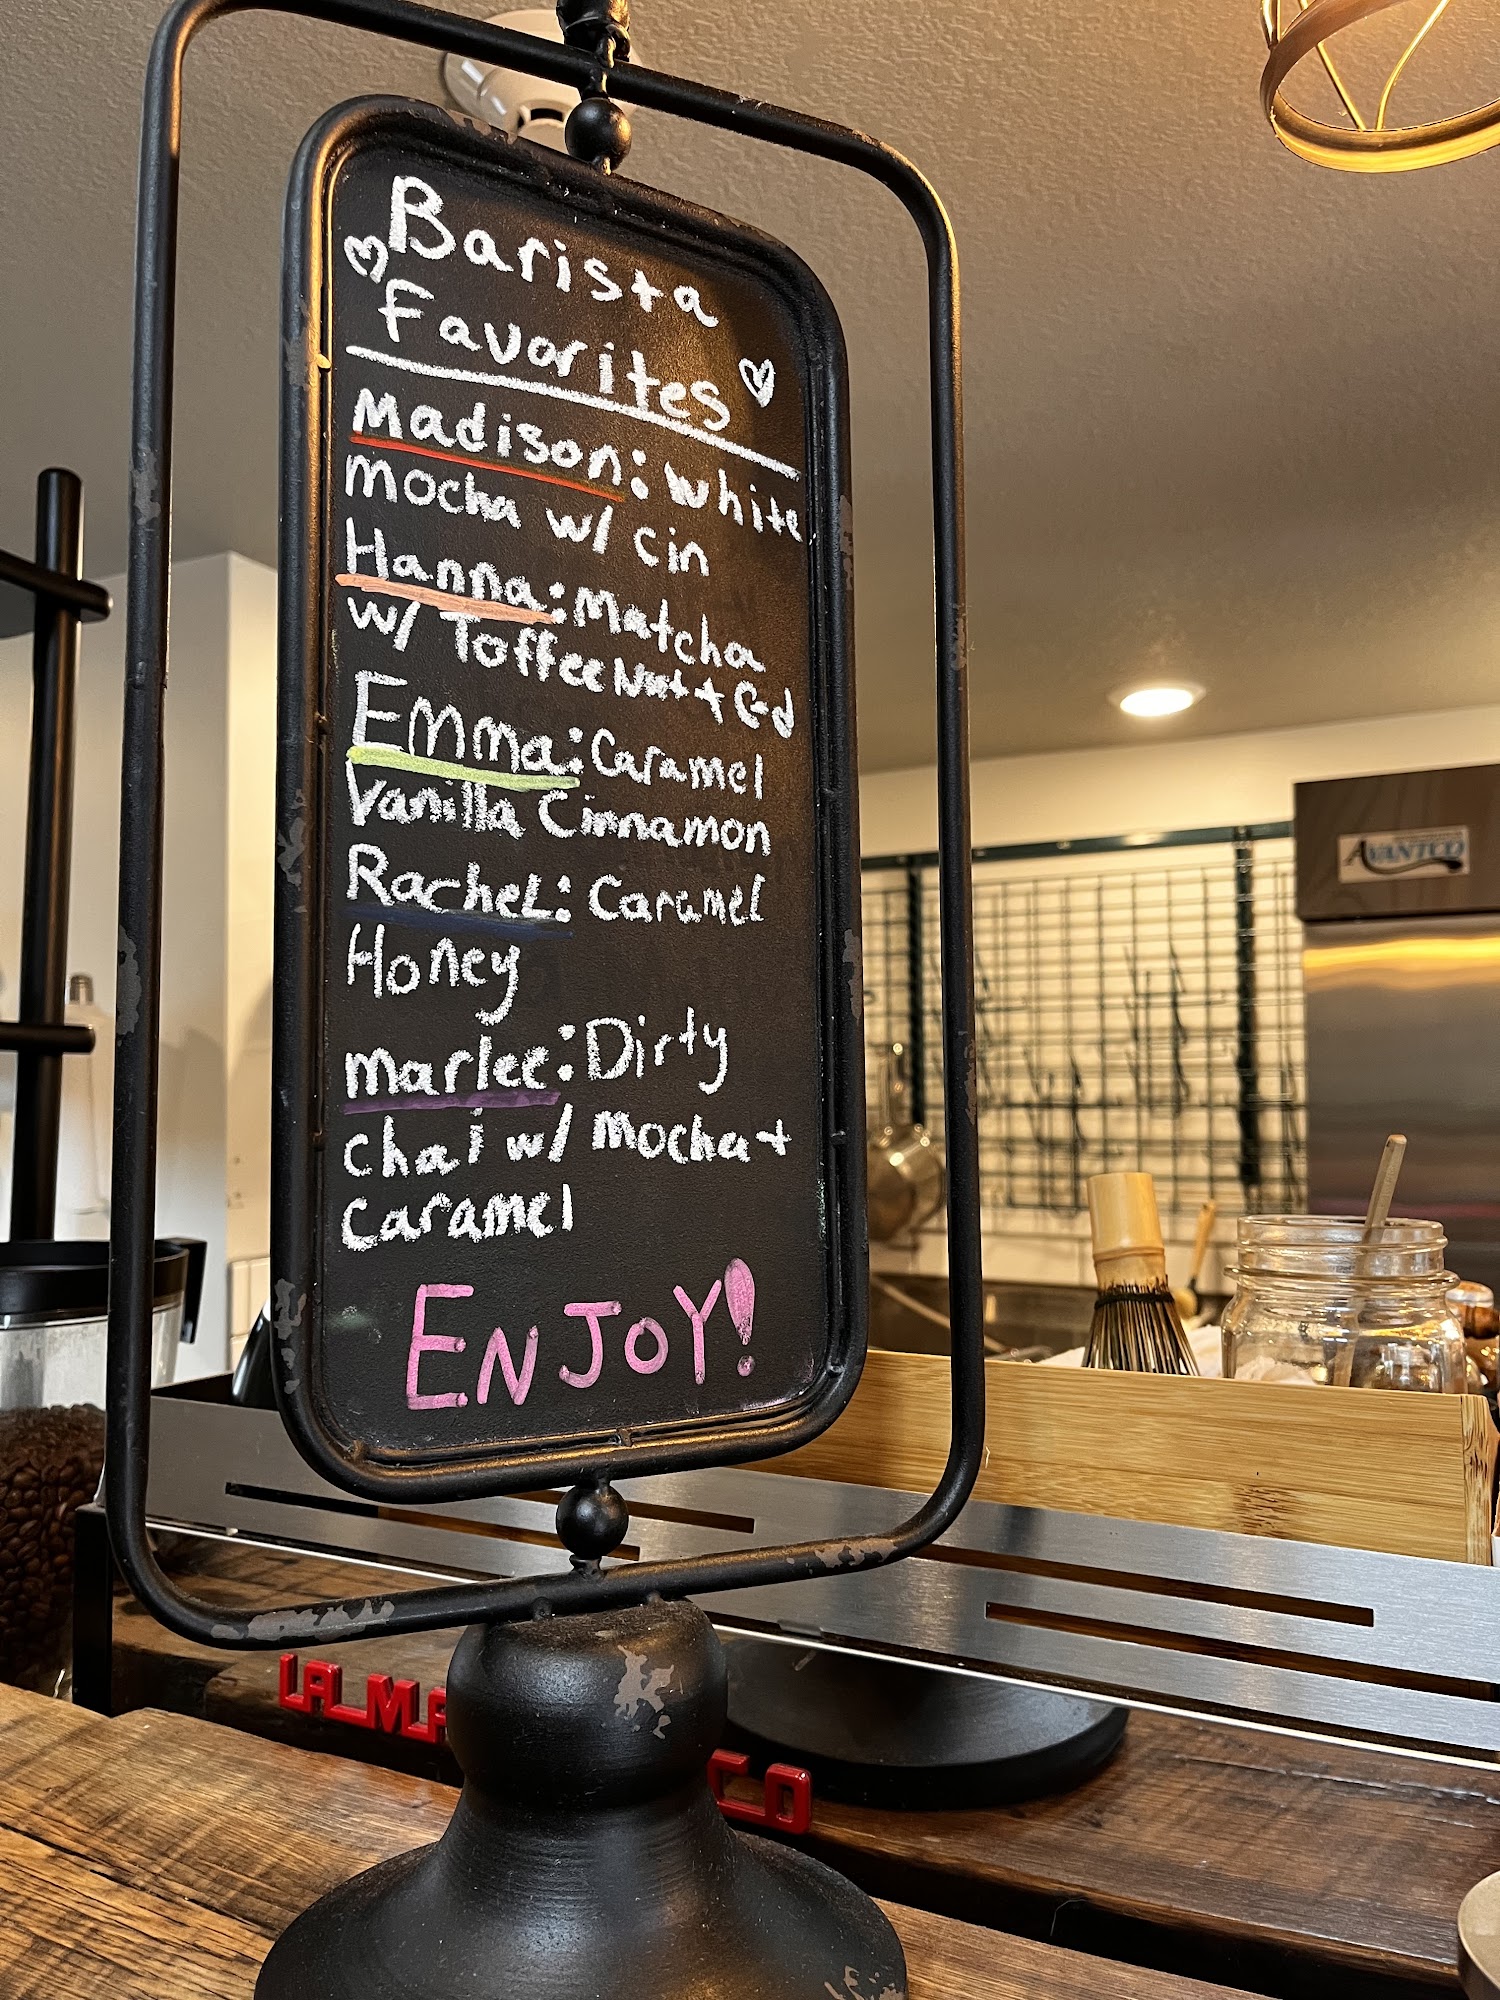 Barista
Favorites
Madison: White
mocha w/ cin
Hanna: Matcha
w/ Toffee Nut +
Emma: Caramel
Vanilla Cinnamon
Rachel: Caramel
Honey
marlee: Dirty
chai w/ mocha +
caramel
ENJOY!
AVANTCO
LA MA
CO